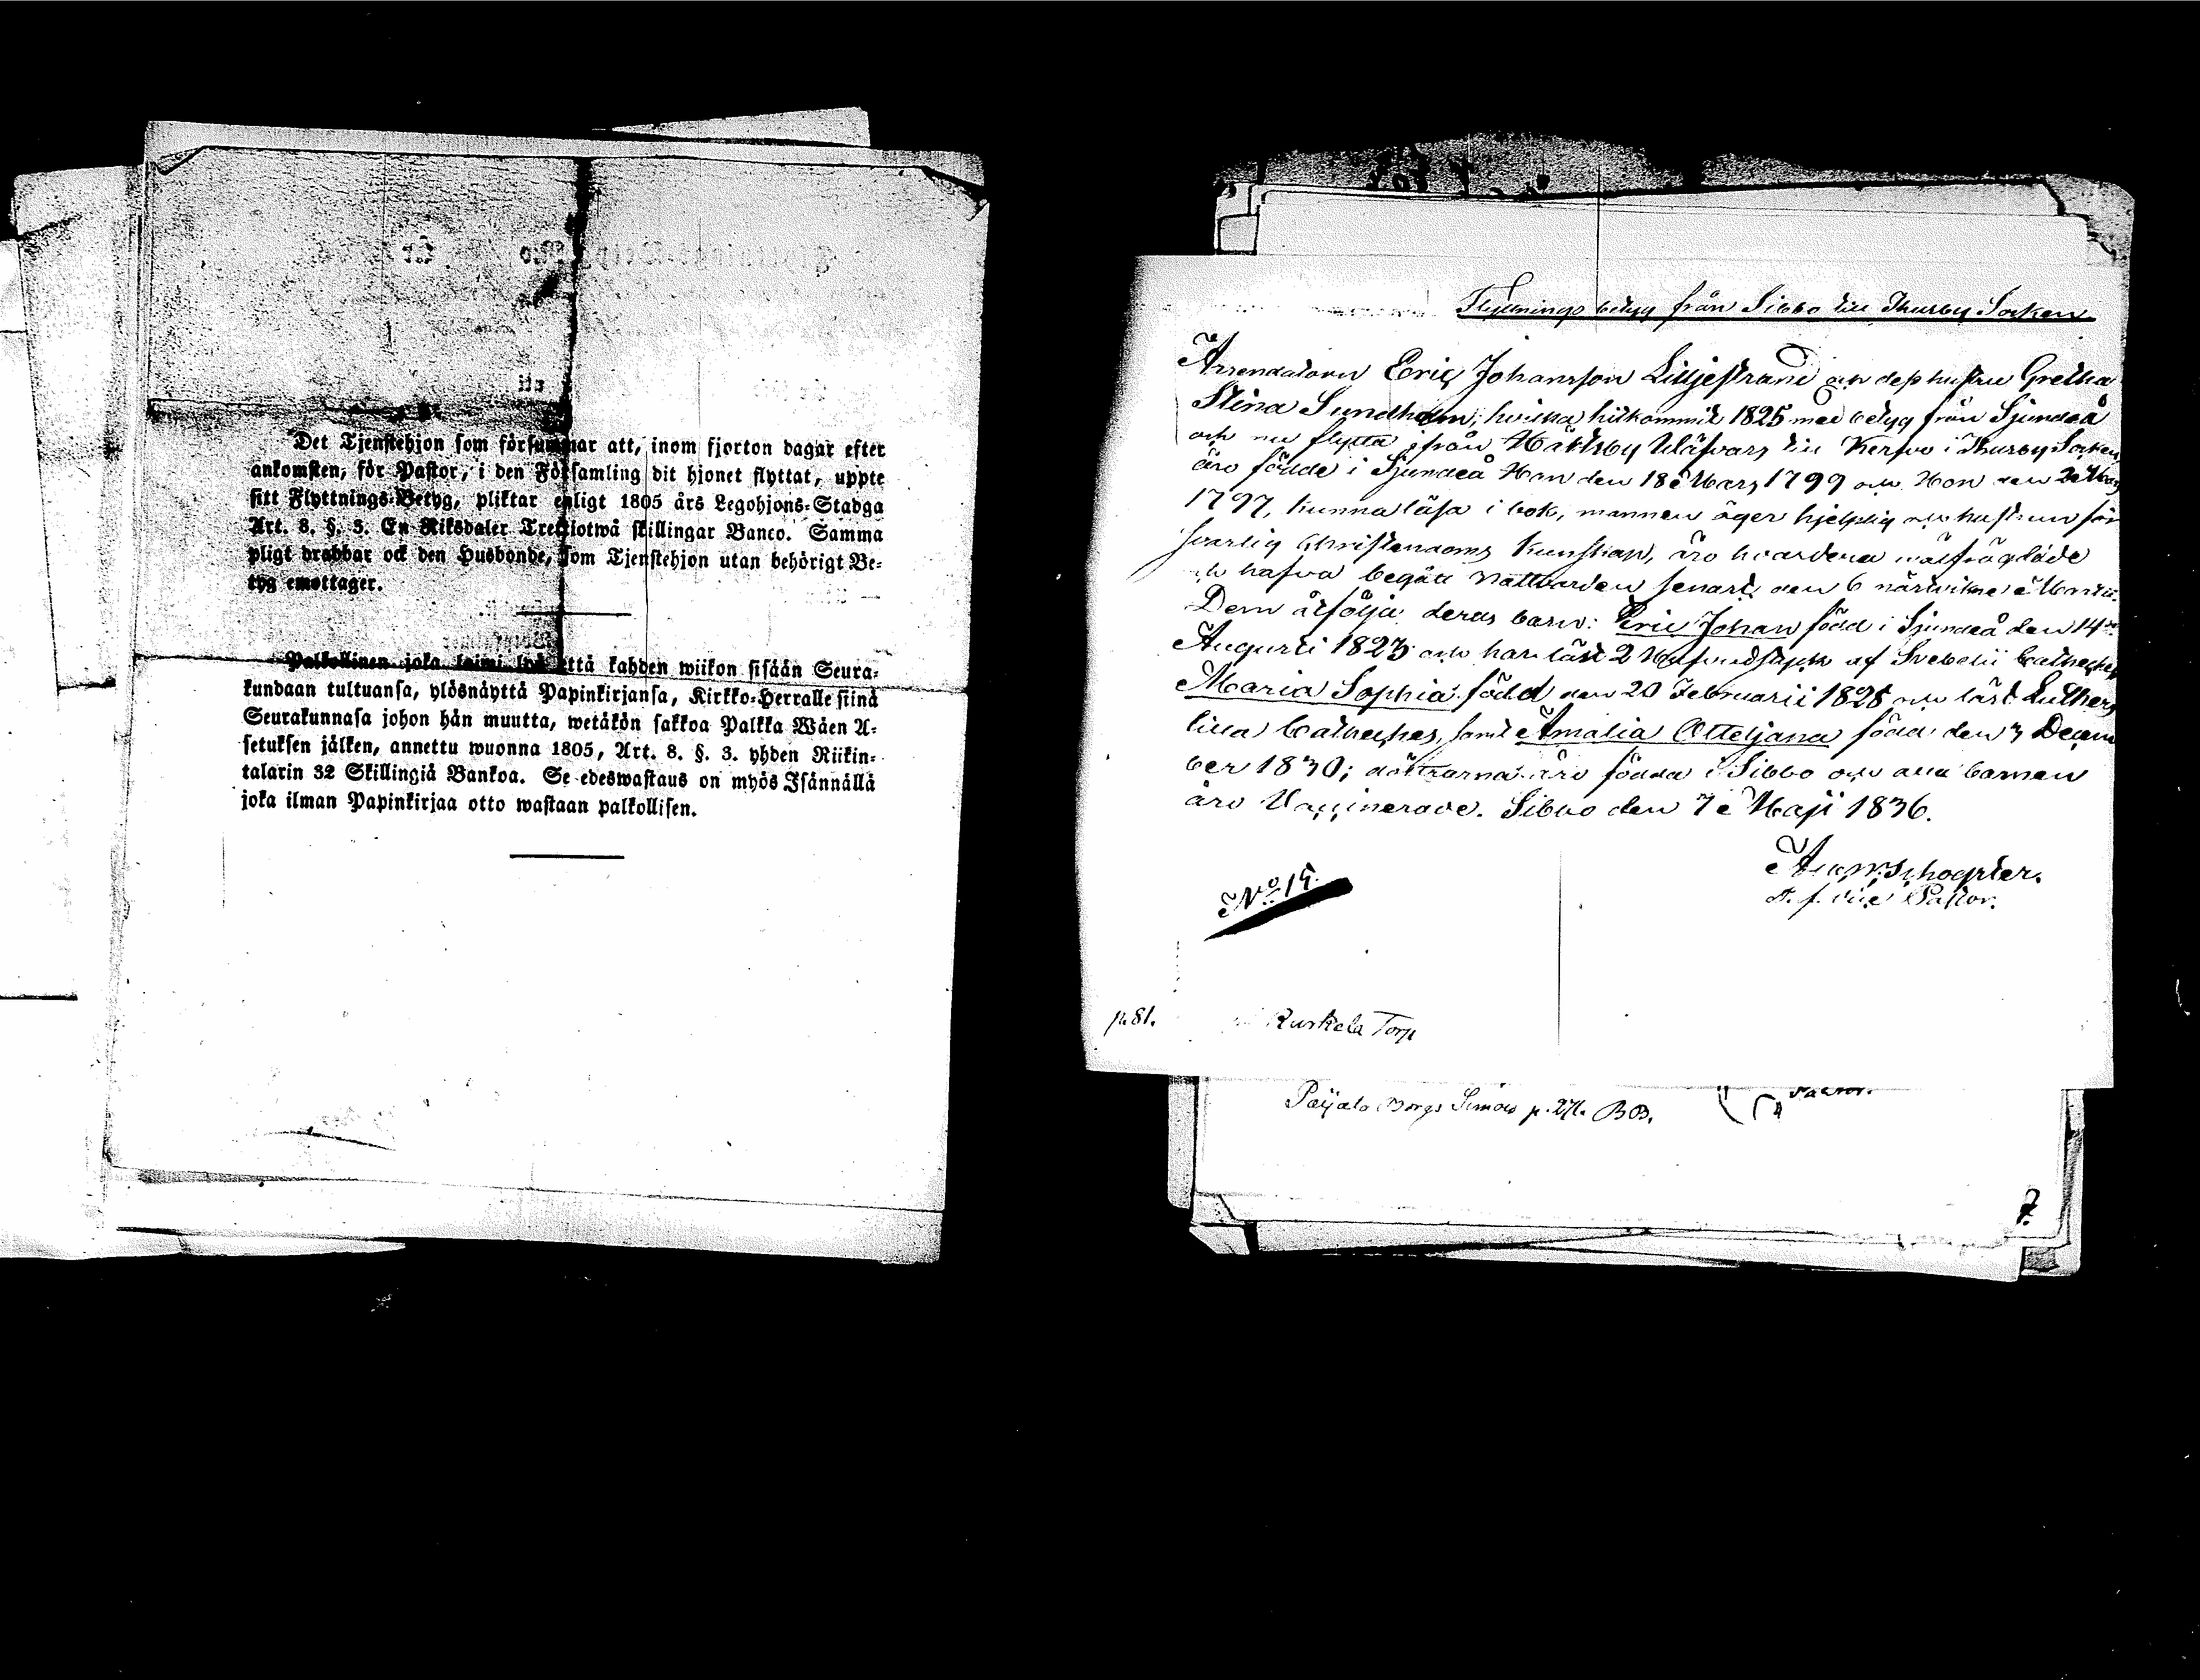 Det Tjenstehjon som försummar att, inom fjorton dagar efter
ankomsten, för Pastor, i den Församling dit hjonet flyttat, uppte
sitt Flyttnings-Betyg, pliktar enligt 1805 års Legohjons-Stadga
Art. 8. §. 3. En Riksdaler Trettiotwå skillingar Banco. Samma
pligt drabbar ock den Husbonde, som Tjenstehjon utan behörigt Be-
tyg emottager.
Palkollinen joka laimi lyö että kahden wiikon sisään Seura-
kundaan tultuansa, ylösnäyttä Papinkirjansa, Kirkko-Herralle siinä
Seurakunnasa johon hän muutta, wetäkön sakkoa Palkka Wäen A-
setuksen jälken, annettu wuonna 1805, Art. 8. §. 3. yhden Riikin-
talarin 32 Skillingiä Bankoa. Se edeswastaus on myös Isännällä
joka ilman Papinkirjaa otto wastaan palkollisen.
Flyttnings betyg från Sibbo till Thusby Socken
Arrendatorn Eric Johansson Liljestrand och dess hustru Gretha
Stina Sundholm, hvilka hitkommit 1825 med betyg från Sjundeå
och nu flytta ifrån till Kervo i Thusby Socken,
äro födde i Sjundeå Han den 18 Mars 1799 och Hon den 2 Mars
1797, kunna läsa i bok, mannen äger hjelplig och hustrun för
svarlig Christendoms Kunskap, äro hvardera wälfrägdade
och hafva begått Nattvarden senast den 6 nästvikne Martii.
Dem åtfölja deras barn: Eric Johan född i Sjundeå den 14
Augusti 1823 och har läst 2 Hufvudstyck af Svebelii Catheches,
Maria Sophia född den 20 Februarii 1828 och läst Luthers
lilla Catheches, samt Amalia Otteljana född den 3 Decem
ber 1830; döttrarna äro födda i Sibbo och alla barnen
äro Vaccinerade. Sibbo den 7 Maji 1836.
Pastor.
No 19.
p. 81. Ruskela Torp
Päijalo Borgs Simois p. 271. BB.
Pastor.
7.